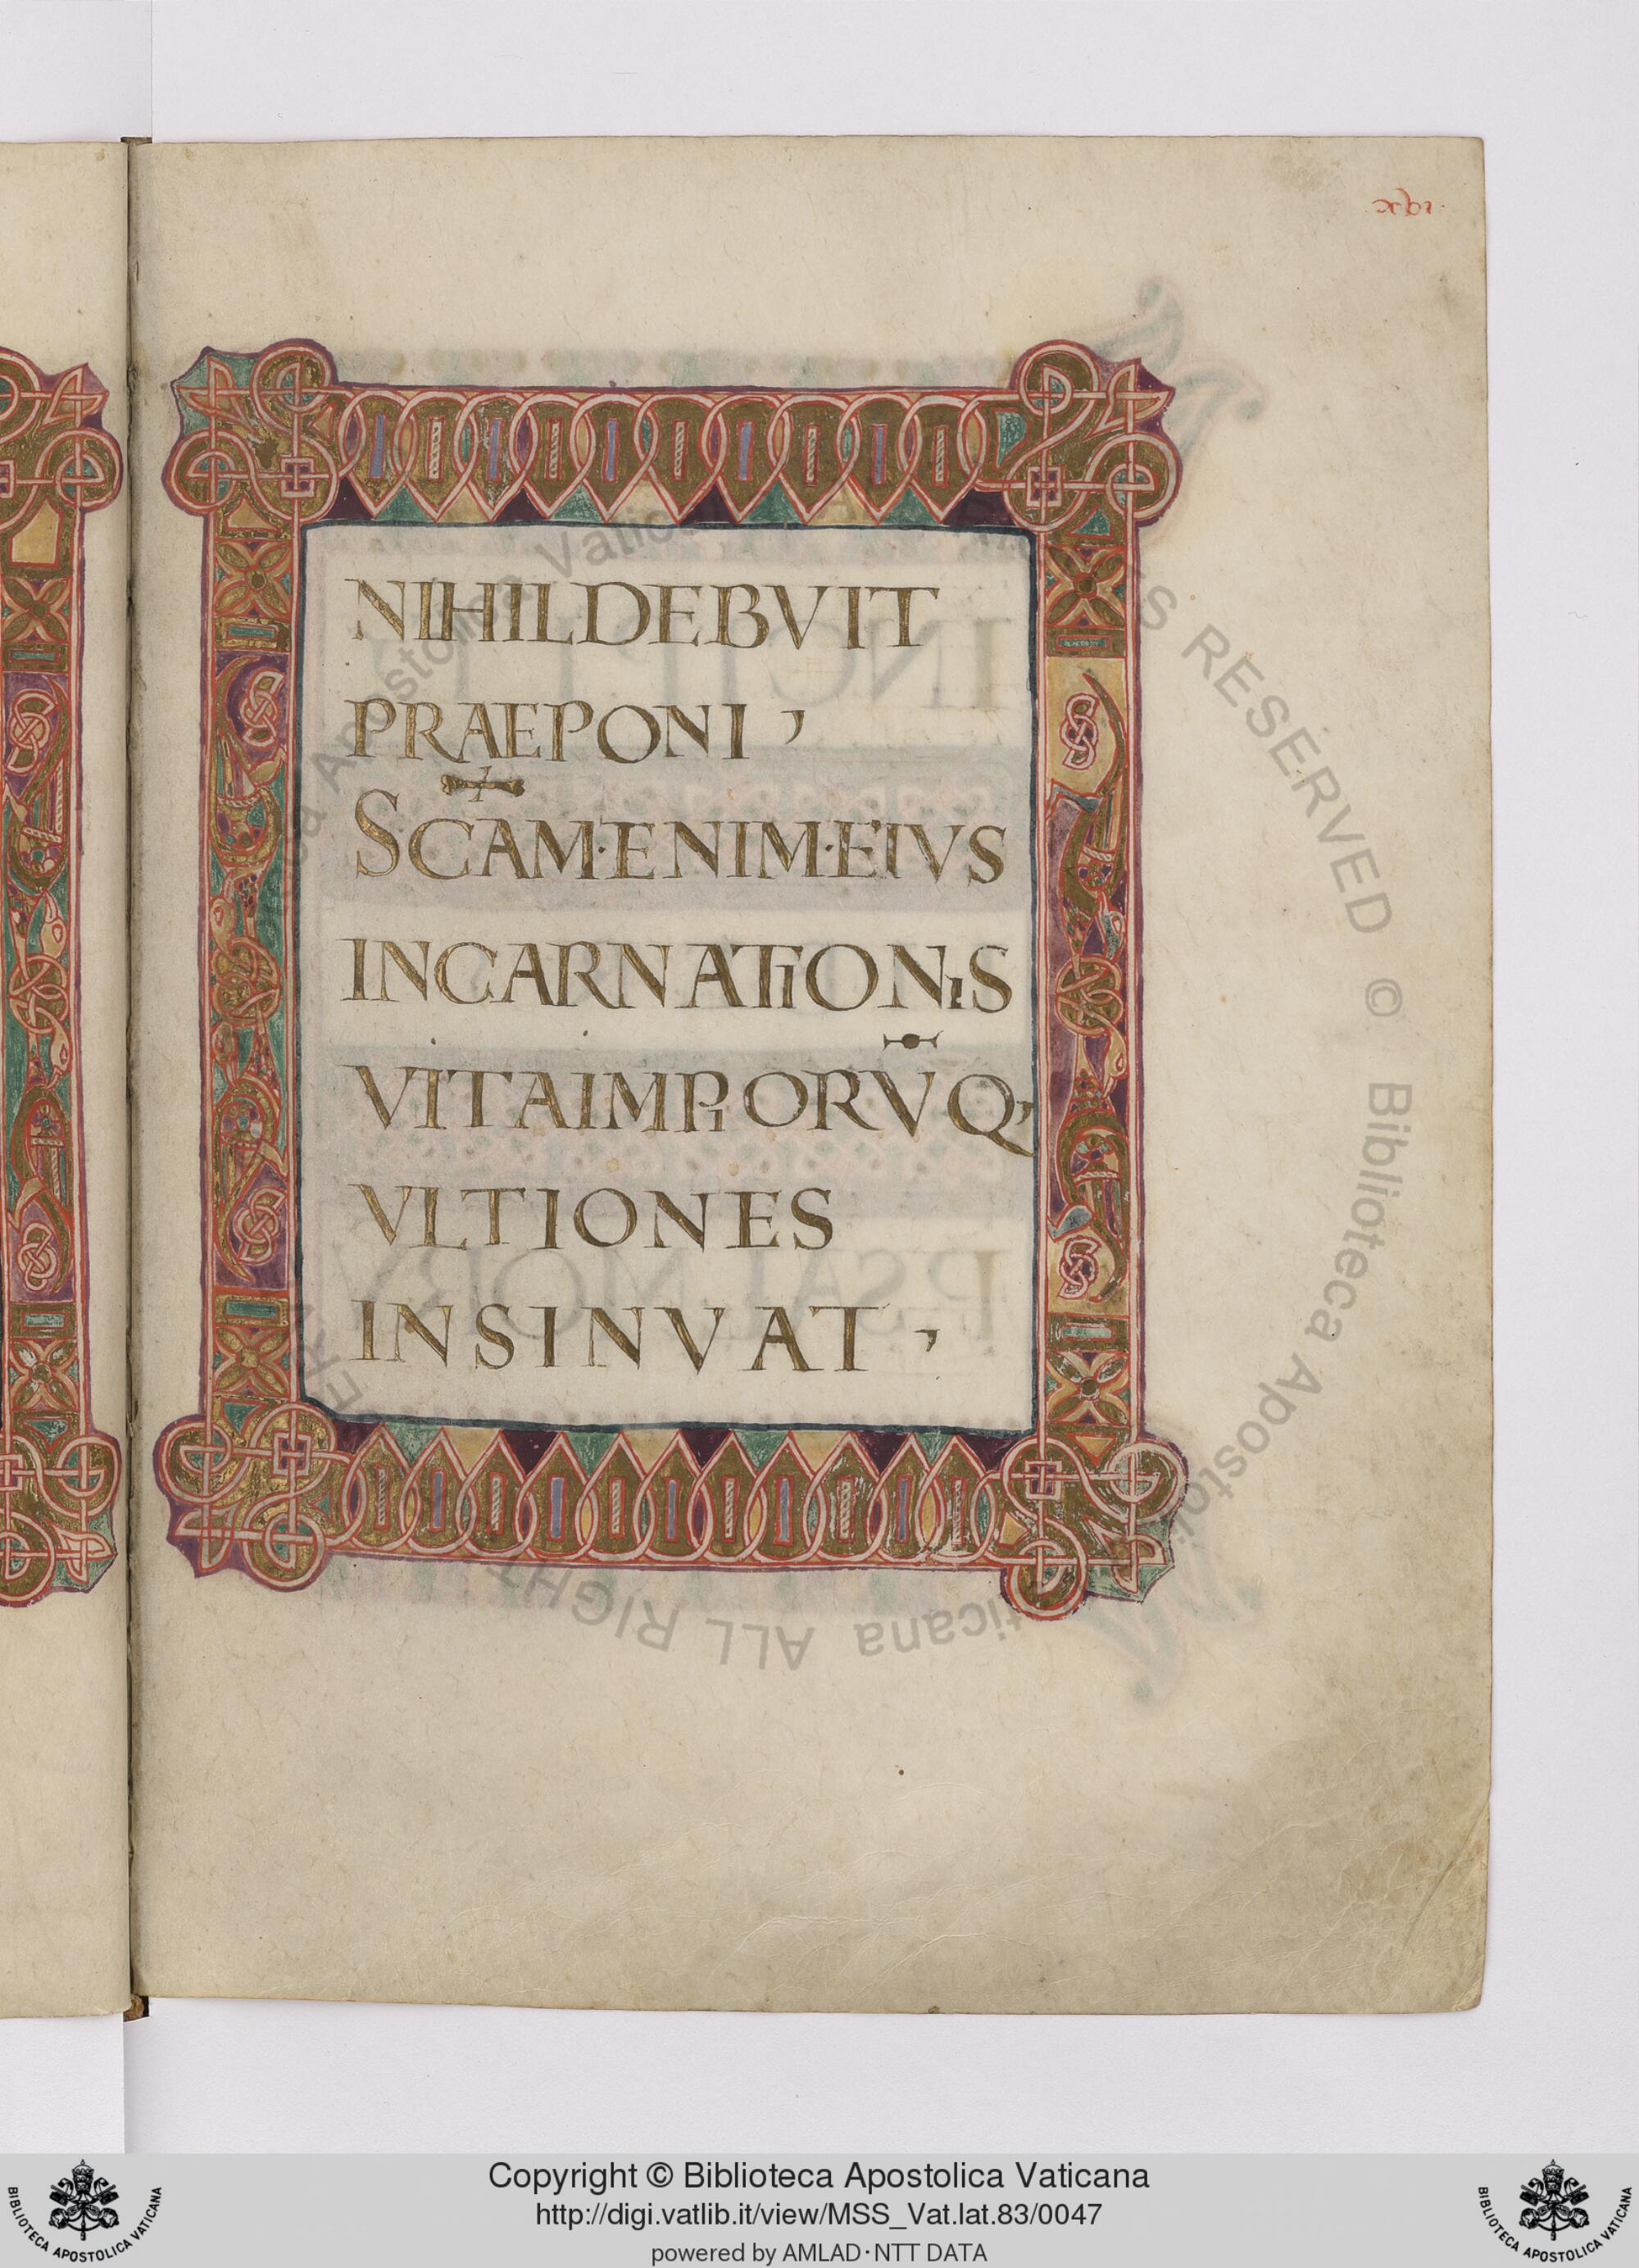 xvi.
NIHIL DEBVIT
PRAEPONI,
SCAM·ENIM·EIVS
INCARNATIONIS
VITA IMPIORV̅ Q,
VLTIONES
INSINVAT,
Biblioteca Apostolica Vaticana ALL RIGHTS RESERVED ©
Copyright © Biblioteca Apostolica Vaticana
http://digi.vatlib.it/view/MSS_Vat.lat.83/0047
powered by AMLAD·NTT DATA
BIBLIOTECA APOSTOLICA VATICANA
BIBLIOTECA APOSTOLICA VATICANA